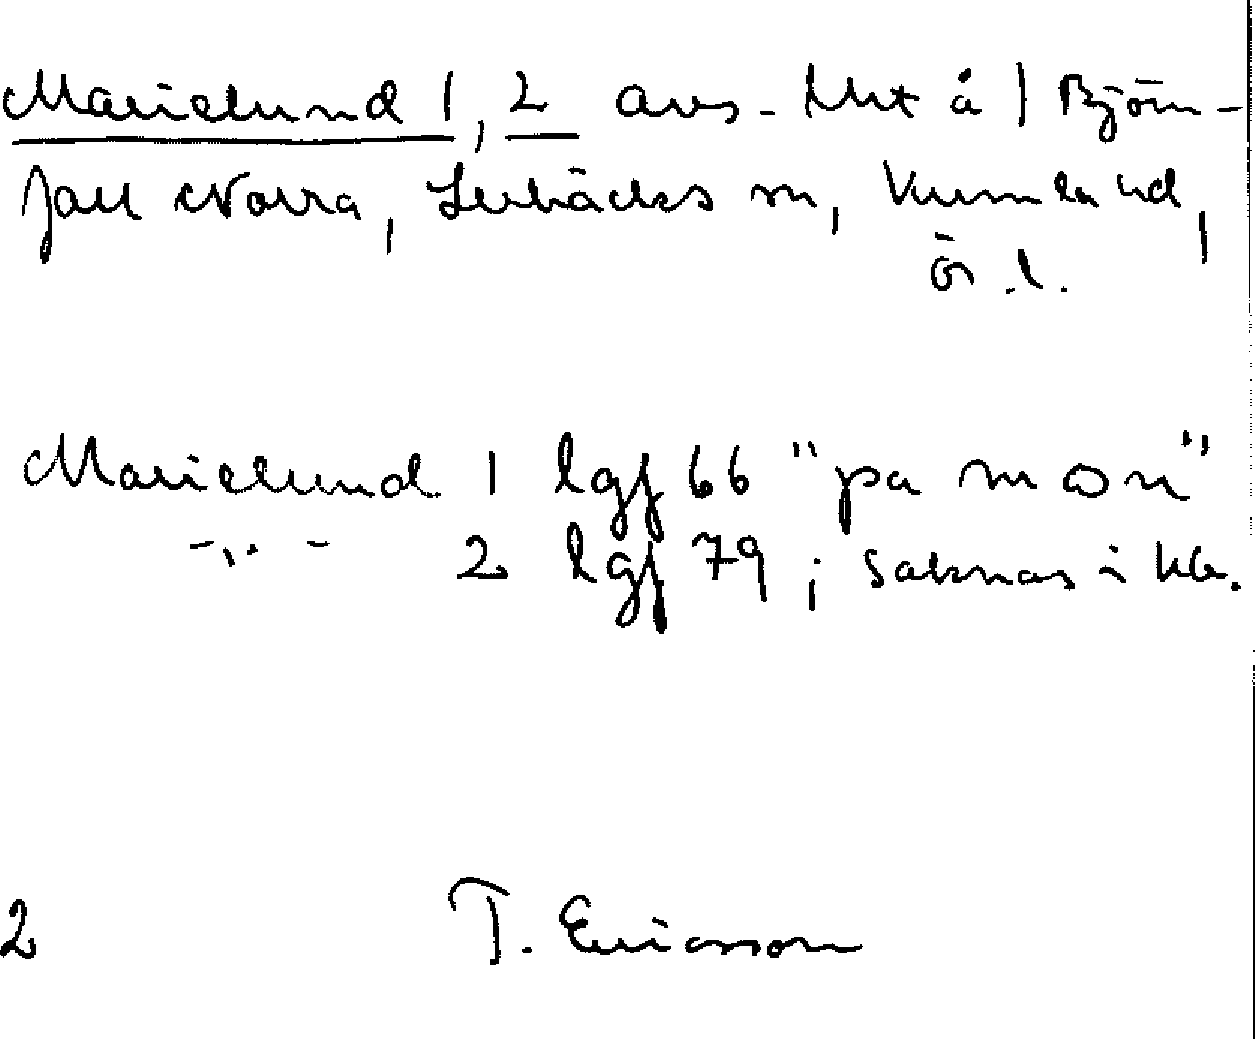 Marielund 1, 2 avs. tht å 1 Björn-
fall Norra, Lerbäcks sn, Kumla hd,
Ör.l.
Marielund 1 lgf 66 "pa mon"
-"- 2 lgf 79 ; saknas i kb.
2 T. Ericsson